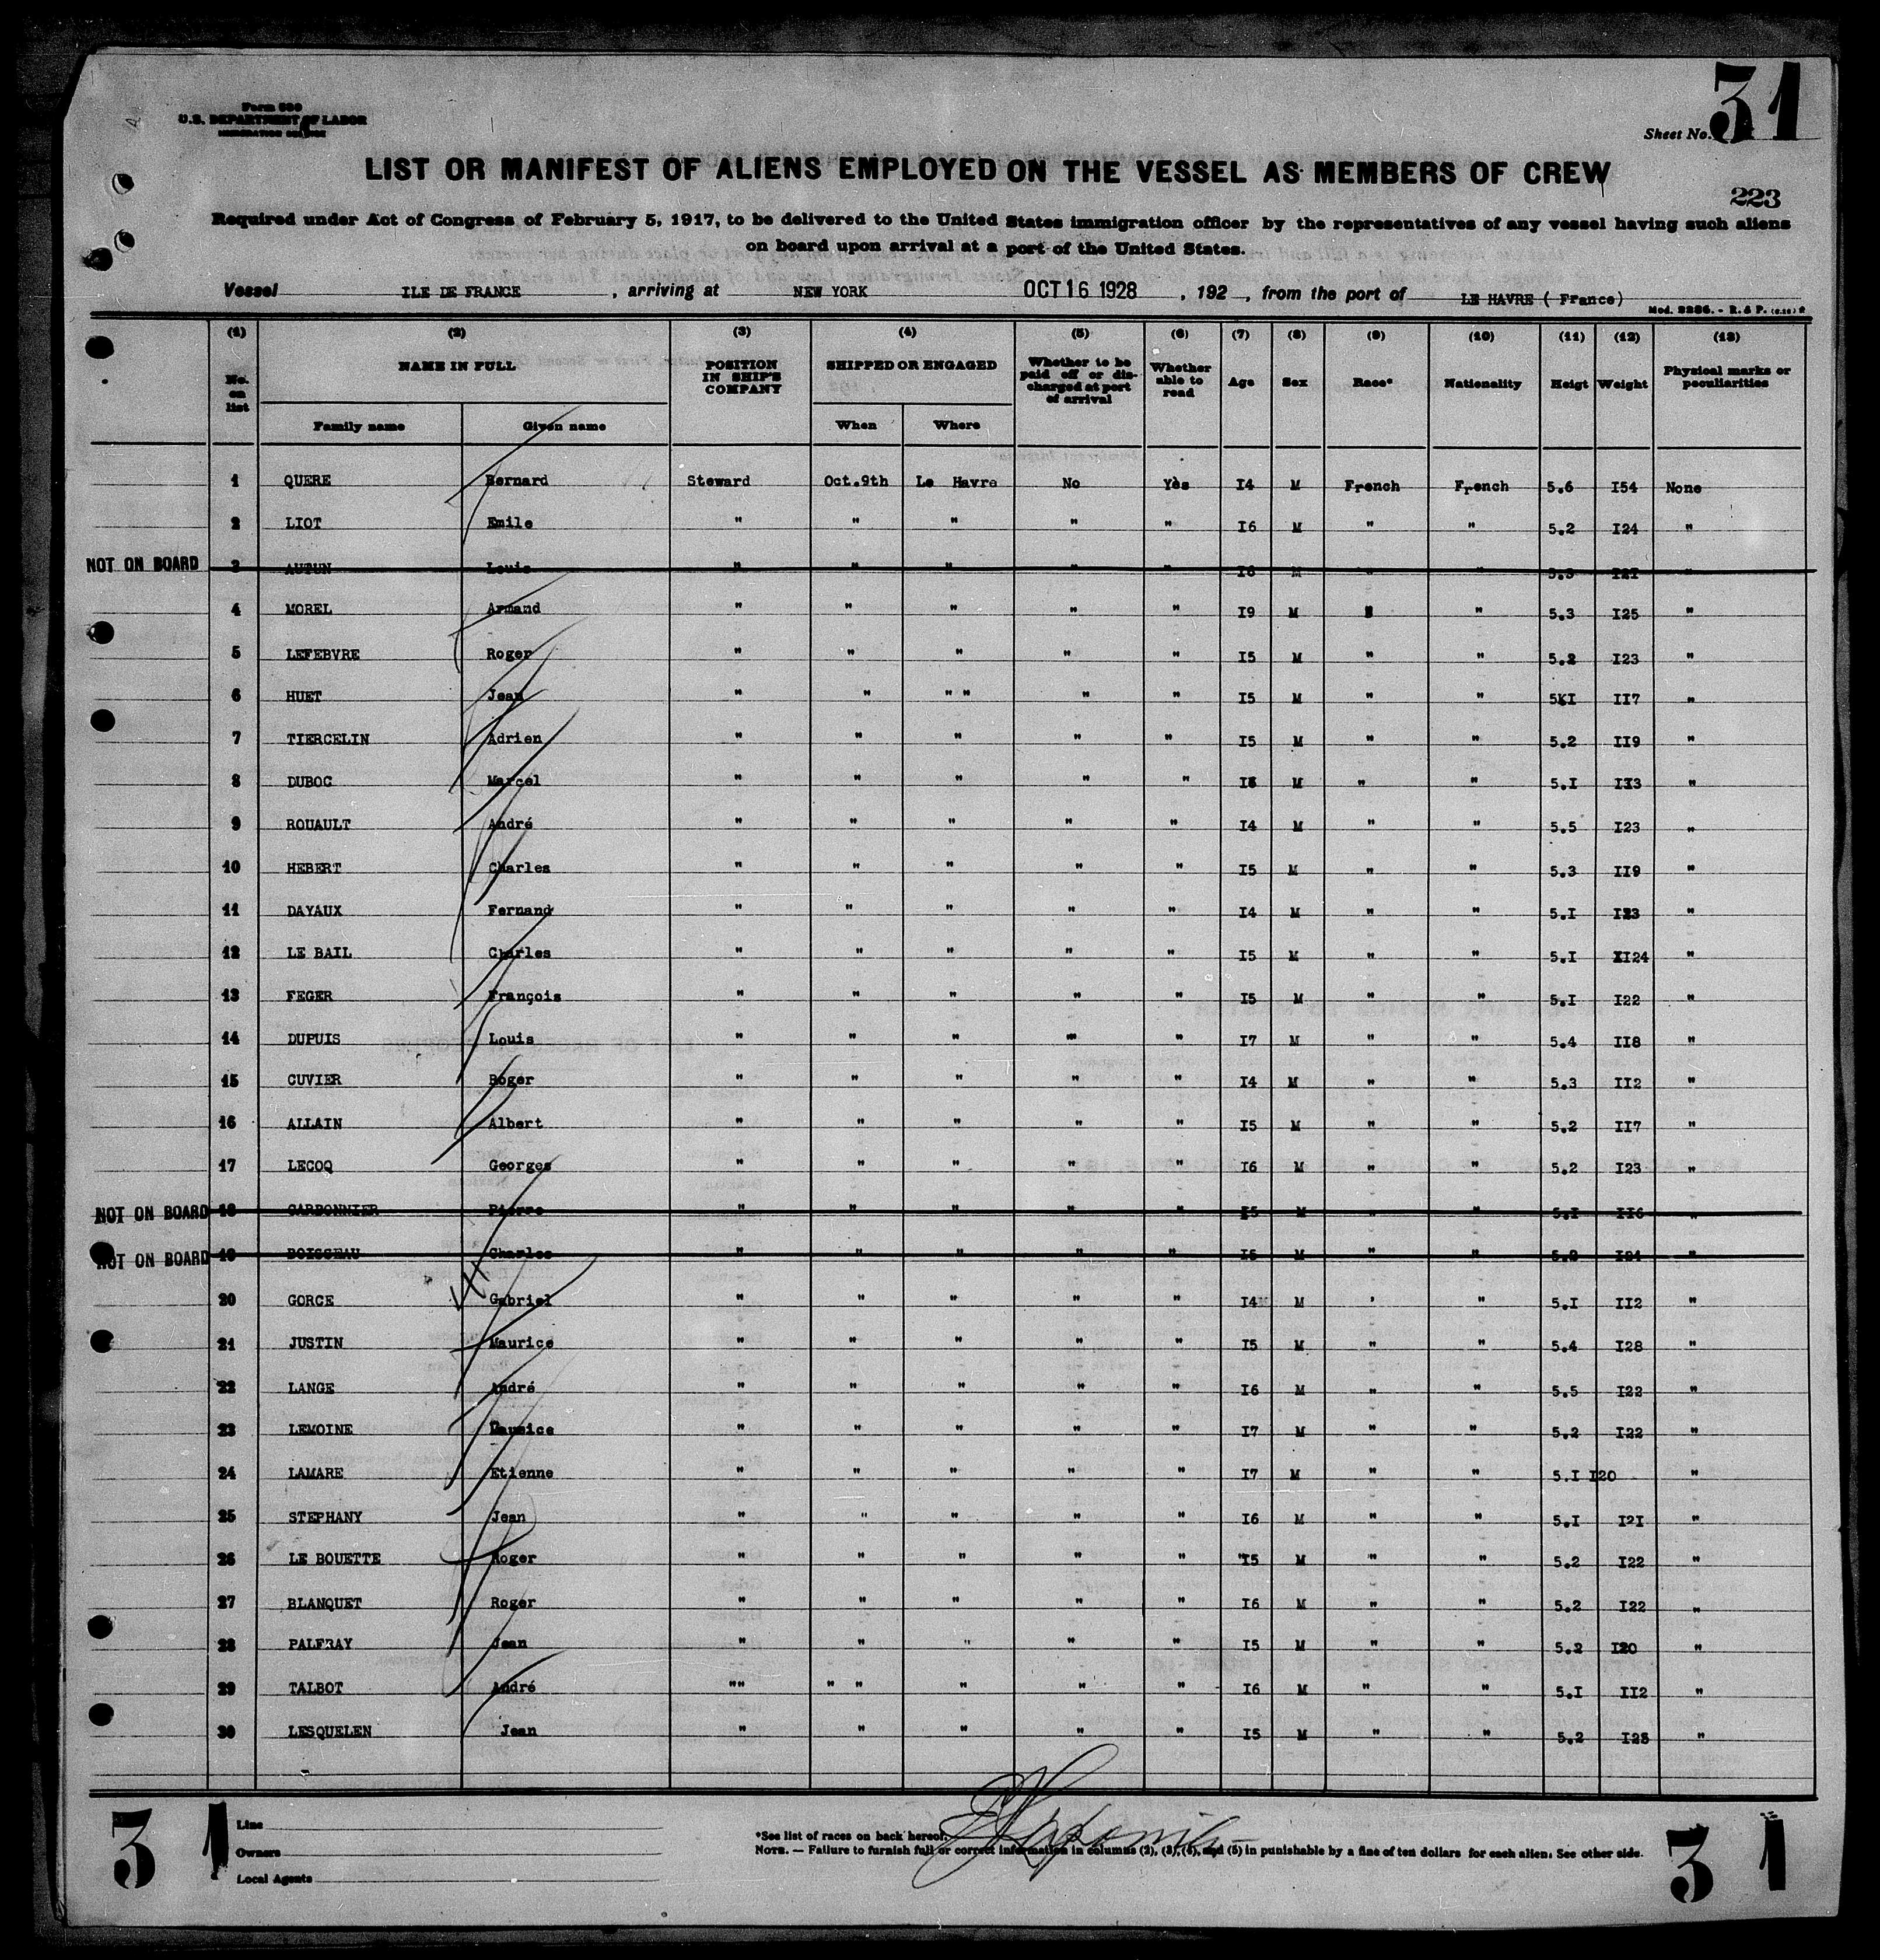 Form 680
U.S. DEPARTMENT OF LABOR
IMMIGRATION SERVICE
Sheet No. 31
LIST OR MANIFEST OF ALIENS EMPLOYED ON THE VESSEL AS MEMBERS OF CREW
223
Required under Act of Congress of February 5, 1917, to be delivered to the United States immigration officer by the representatives of any vessel having such aliens
on board upon arrival at a port of the United States.
Vessel ILE DE FRANCE , arriving at NEW YORK OCT 16 1928 , 192 , from the port of LE HAVRE ( France)
Mod. 2286. - R. & P.
(1) (2) (3) (4) (5) (6) (7) (8) (9) (10) (11) (12) (13)
No. on list NAME IN FULL POSITION IN SHIP'S COMPANY SHIPPED OR ENGAGED Whether to be paid off or discharged at port of arrival Whether able to read Age Sex Race* Nationality Heigt Weight Physical marks or peculiarities
Family name Given name When Where
1 QUERE Bernard Steward Oct.9th Le Havre No Yès I4 M French French 5.6 I54 None
2 LIOT Emile " " " " " I6 M " " 5.2 I24 "
NOT ON BOARD 3 AUTUN Louis " " " " " I6 M " " 5.3 I2I "
4 MOREL Armand " " " " " I9 M " 5.3 I25 "
5 LEFEBVRE Roger " " " " " I5 M " " 5.2 I23 "
6 HUET Jean " " " " " " I5 M " " 5KI II7 "
7 TIERCELIN Adrien " " " " " I5 M " " 5.2 II9 "
8 DUBOC Marcel " " " " " I6 M " " 5.I I33 "
9 ROUAULT André " " " " " I4 M " " 5.5 I23 "
10 HEBERT Charles " " " " " I5 M " " 5.3 II9 "
11 DAYAUX Fernand " " " " " I4 M " " 5.I I23 "
12 LE BAIL Charles " " " " " I5 M " " 5.I XI24 "
13 FEGER François " " " " " I5 M " " 5.I I22 "
14 DUPUIS Louis " " " " " I7 M " " 5.4 II8 "
15 CUVIER Roger " " " " " I4 M " " 5.3 II2 "
16 ALLAIN Albert " " " " " I5 M " " 5.2 II7 "
17 LECOQ Georges " " " " " I6 M " " 5.2 I23 "
NOT ON BOARD 18 CARBONNIER Pierre " " " " " I5 M " " 5.I II6 "
NOT ON BOARD 19 BOISSEAU Charles " " " " " I5 M " " 5.2 I24 "
20 GORCE Gabriel " " " " " I4 M ' " 5.I II2 "
21 JUSTIN Maurice " " " " " I5 M " " 5.4 I28 "
22 LANGE André " " " " " I6 M " " 5.5 I22 "
23 LEMOINE Maurice " " " " " I7 M " " 5.2 I22 "
24 LAMARE Etienne " " " " " I7 M " " 5.I I20 "
25 STEPHANY Jean " " " " " I6 M " " 5.I I2I "
26 LE BOUETTE Roger " " " " " "I5 M " " 5.2 I22 "
27 BLANQUET Roger " " " " " I6 M " " 5.2 I22 "
28 PALFRAY Jean " " " " " I5 M " " 5.2 I20 "
29 TALBOT André "" " " " " " I6 M " " 5.I II2 "
30 LESQUELEN Jean " " " " " I5 M " " 5.2 I25 "
31 Line
Owners
Local Agents
*See list of races on back hereof.
NOTE. — Failure to furnish full or correct information in columns (2), (3), (4), and (5) in punishable by a fine of ten dollars for each alien. See other side.
31